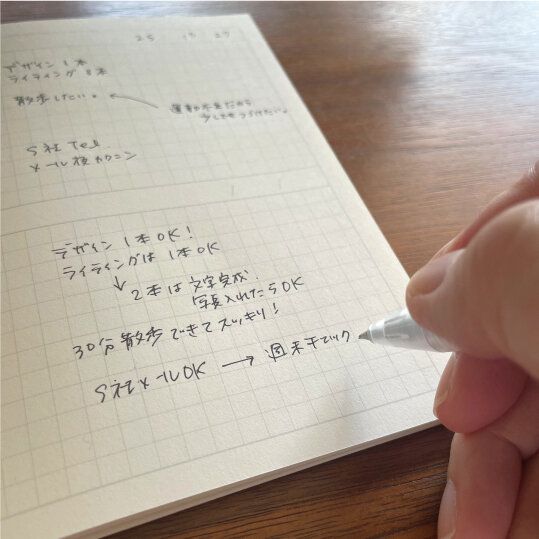 デザイン 1本
ライティング 3本
散歩したい。 ← 運動不足だから
少しでもつづけたい。
S社 Tel
メール夜カクニン
デザイン 1本OK!
ライティングは 1本OK
↓ 2本は文字完成、
写真入れたらOK
30分散歩できてスッキリ!
S社メールOK → 週末チェック